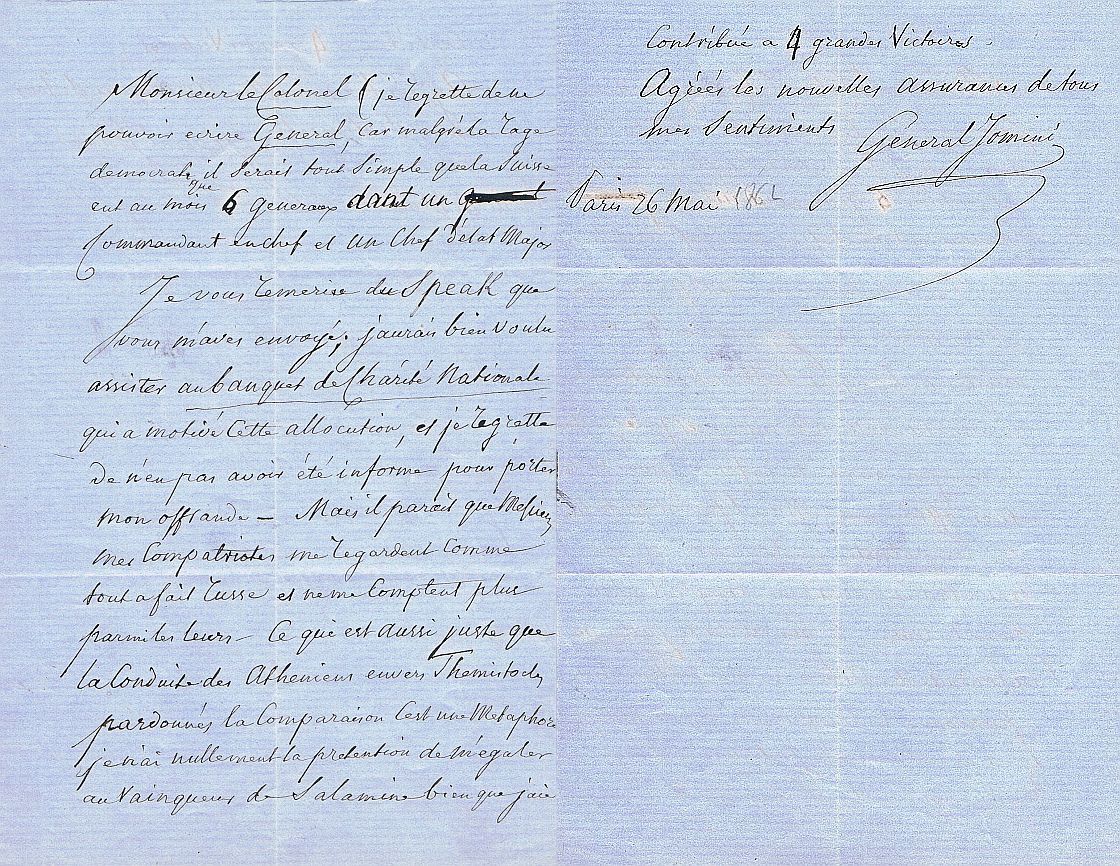 Monsieur le Colonel (je regrette de ne
pouvoir ecrire General, car malgré la rage
democrate il serait tout simple que la Suisse
que
eut au mois 6 generaux dant un
Commandant en chef et un Chef d'état Major
Je vous remercie du Speak que
vous m'aves envoyé; j'aurais bien voulu
assister au banquet de Charité Nationale
qui a motivé Cette allocution, et je regrette
de n'en pas avoir été informé pour porter
mon offrande — Mais il parait que Messieurs
mes Compatriotes me regardent Comme
tout a fait russe et ne me Comptent plus
parmi les leurs — Ce qui est aussi juste que
la Conduite des Atheniens envers Themistocles
pardonnés la Comparaison C'est une Metaphore
je n'ai nullement la pretention de m'egaler
au Vainqueur de Salamine bien que j'aie
Contribué a 4 grandes Victoires.
Agréés les nouvelles assurances de tous
mes Sentiments
General Jomini
Paris 26 Mai 1862